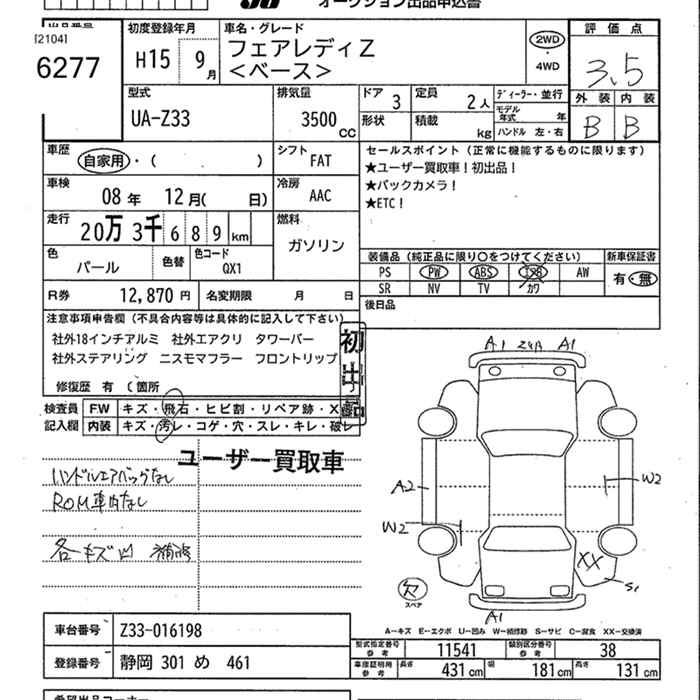 オークション出品申込書
出品番号
[2104]
6277
初度登録年月
H15 9月
車名・グレード
フェアレディZ
<ベース>
2WD
・
4WD
評価点
3.5
外装 内装
B B
型式
UA-Z33
排気量
3500 CC
ドア 3
形状
定員 2人
積載 kg
ディーラー・並行
モデル年式 年
ハンドル 左・右
車歴
自家用・( )
シフト
FAT
車検
08年 12月( 日)
冷房
AAC
走行
20万 3千 6 8 9 km
燃料
ガソリン
色
パール
色替
色コード
QX1
R券 12,870円 名変期限 月 日
セールスポイント(正常に機能するものに限ります)
★ユーザー買取車!初出品!
★バックカメラ!
★ETC!
装備品(純正品に限り○をつけてください)
PS PW ABS エアB AW
SR NV TV カワ
新車保証書
有・無
後日品
注意事項申告欄(不具合内容等は具体的に記入して下さい)
社外18インチアルミ 社外エアクリ タワーバー
社外ステアリング ニスモマフラー フロントリップ
修復歴 有(箇所
初出品
検査員記入欄
FW キズ・飛石・ヒビ割・リペア跡・X
内装 キズ・汚レ・コゲ・穴・スレ・キレ・破レ
ユーザー買取車
ハンドルエアバッグなし
ROM車内なし
各キズ凹 補修
A1 A1
A2
W2
W2
XX
S1
欠
スペア
A1
A−キズ E−エクボ U−凹み W−補修跡 S−サビ C−腐食 XX−交換済
車台番号 Z33-016198
登録番号 静岡 301 め 461
型式指定番号 参考 11541
類別区分番号 参考 38
車庫証明用 参考 長さ 431cm 幅 181cm 高さ 131cm
希望出品コーナー